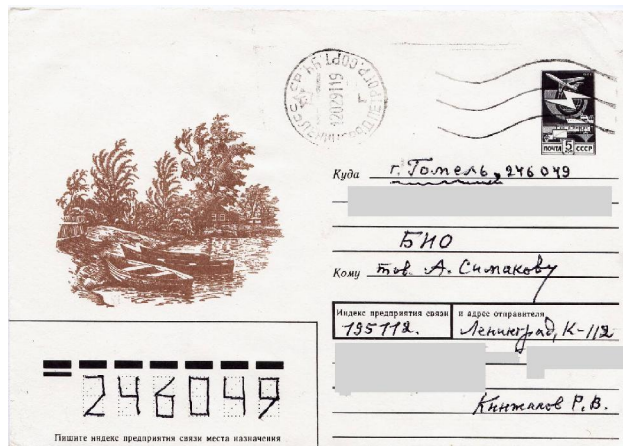 ПОЧТА 5 СССР
Куда г. Гомель, 246049
БИО
Кому тов. А. Симакову
Индекс предприятия связи и адрес отправителя
195112. Ленинград, К-112
Кинжалов Р. В.
246049
Пишите индекс предприятия связи места назначения